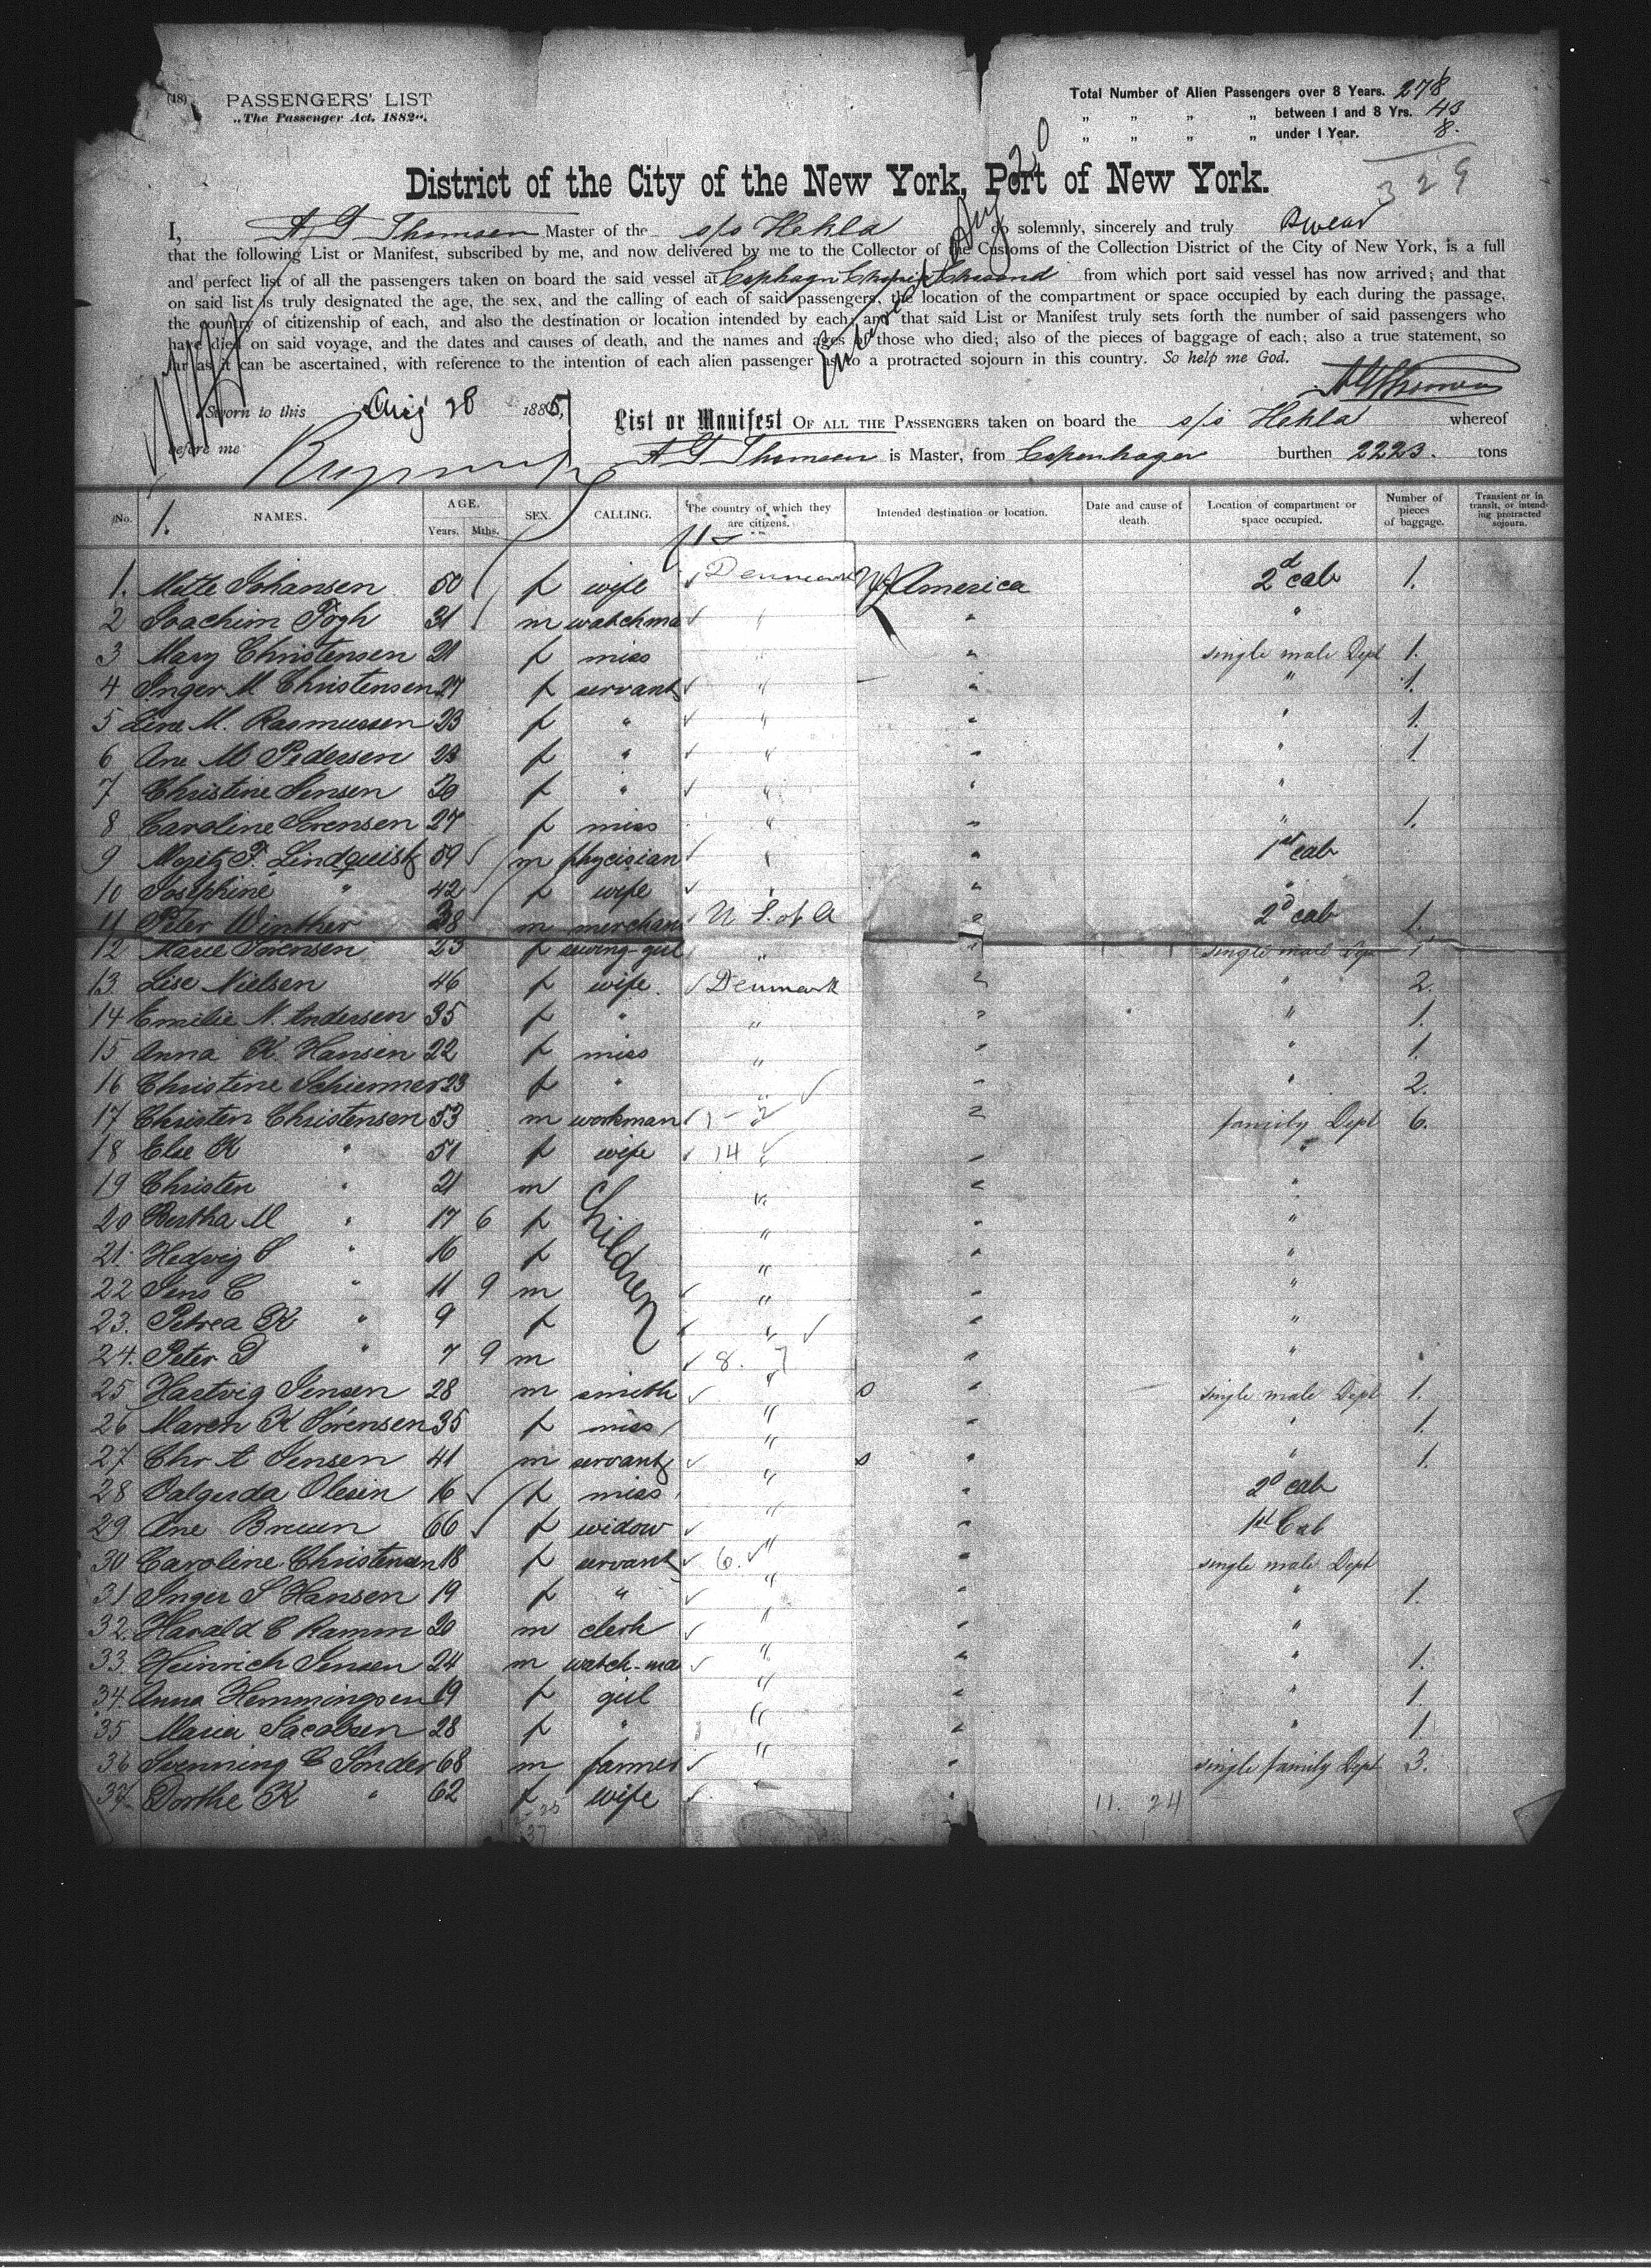 (18) PASSENGERS' LIST
„The Passenger Act, 1882".
Total Number of Alien Passengers over 8 Years. 278
„ „ „ „ between 1 and 8 Yrs. 43
„ „ „ „ under 1 Year. 8.
329
20
District of the City of the New York, Port of New York.
I, A G Thomsen Master of the s/s Hekla do solemnly, sincerely and truly swear
that the following List or Manifest, subscribed by me, and now delivered by me to the Collector of the Customs of the Collection District of the City of New York, is a full
and perfect list of all the passengers taken on board the said vessel at from which port said vessel has now arrived; and that
on said list is truly designated the age, the sex, and the calling of each of said passengers, the location of the compartment or space occupied by each during the passage,
the country of citizenship of each, and also the destination or location intended by each; and that said List or Manifest truly sets forth the number of said passengers who
have died on said voyage, and the dates and causes of death, and the names and ages of those who died; also of the pieces of baggage of each; also a true statement, so
far as it can be ascertained, with reference to the intention of each alien passenger as to a protracted sojourn in this country. So help me God.
A G Thomsen
Sworn to this Aug 28 1885, List or Manifest OF ALL THE PASSENGERS taken on board the s/s Hekla whereof
before me A G Thomsen is Master, from Copenhagen burthen 2223. tons
No. NAMES. AGE. Years. Mths. SEX. CALLING. The country of which they are citizens. Intended destination or location. Date and cause of death. Location of compartment or space occupied. Number of pieces of baggage. Transient or in transit, or intending protracted sojourn.
1.
1. Mette Johansen 50 f wife Denmark America 2d cab 1.
2 Joachim Fogh 31 m watchma " " "
3 Mary Christensen 21 f miss " " single male Dept 1.
4 Inger M Christensen 27 f servant " " " 1.
5 Line M. Rasmussen 23 f " " " " 1.
6 Ane M Pedersen 23 f " " " " 1.
7 Christine Jensen 30 f " " " "
8 Caroline Sorensen 27 f miss " " " 1.
9 Moritz F. Lindquist 59 m phycisian " " 1st cab
10 Josephine " 42 f wife " " "
11 Peter Winther 38 m merchan U S. of A " 2d cab 1.
12 Marie Sorensen 23 f sewing-girl " " single male Dep 1
13. Lise Nielsen 46 f wife Denmark " " 2.
14 Emilie N. Andersen 35 f " " " " 1.
15 Anna K. Hansen 22 f miss " " " 1.
16 Christine Schiermer 23 f " " " " 2.
17 Christen Christensen 53 m workman " " family Dept 6.
18 Else K " 51 f wife 14 " " "
19 Christen " 21 m " " "
20 Bertha M " 17 6 f Children " " "
21. Hedvig S " 16 f " " "
22 Jens C " 11 9 m " " "
23. Petrea K " 9 f " " "
24. Peter D " 7 9 m 8. 7 " "
25 Hartvig Jensen 28 m smith " " single male Dept 1.
26 Maren K Sörensen 35 f miss " " " 1.
27 Chr A Jensen 41 m servant " " " 1.
28 Valgerda Olesen 16 f miss " " 2d cab
29 Ane Bruun 66 f widow " " 1st Cab
30 Caroline Christensen 18 f servant 6. " " single male Dept
31 Inger S Hansen 19 f " " " " 1.
32. Harald C Ramm 20 m clerk " " "
33. Heinrich Jensen 24 m watch-ma " " " 1.
34. Anna Hemmingsen 19 f girl " " " 1.
35 Maria Jacobsen 28 f " " " " 1.
36 Svenning C Sönder 68 m farmer " " single family Dept 3.
37 Dorthe K " 62 f wife " "
11. 24
37